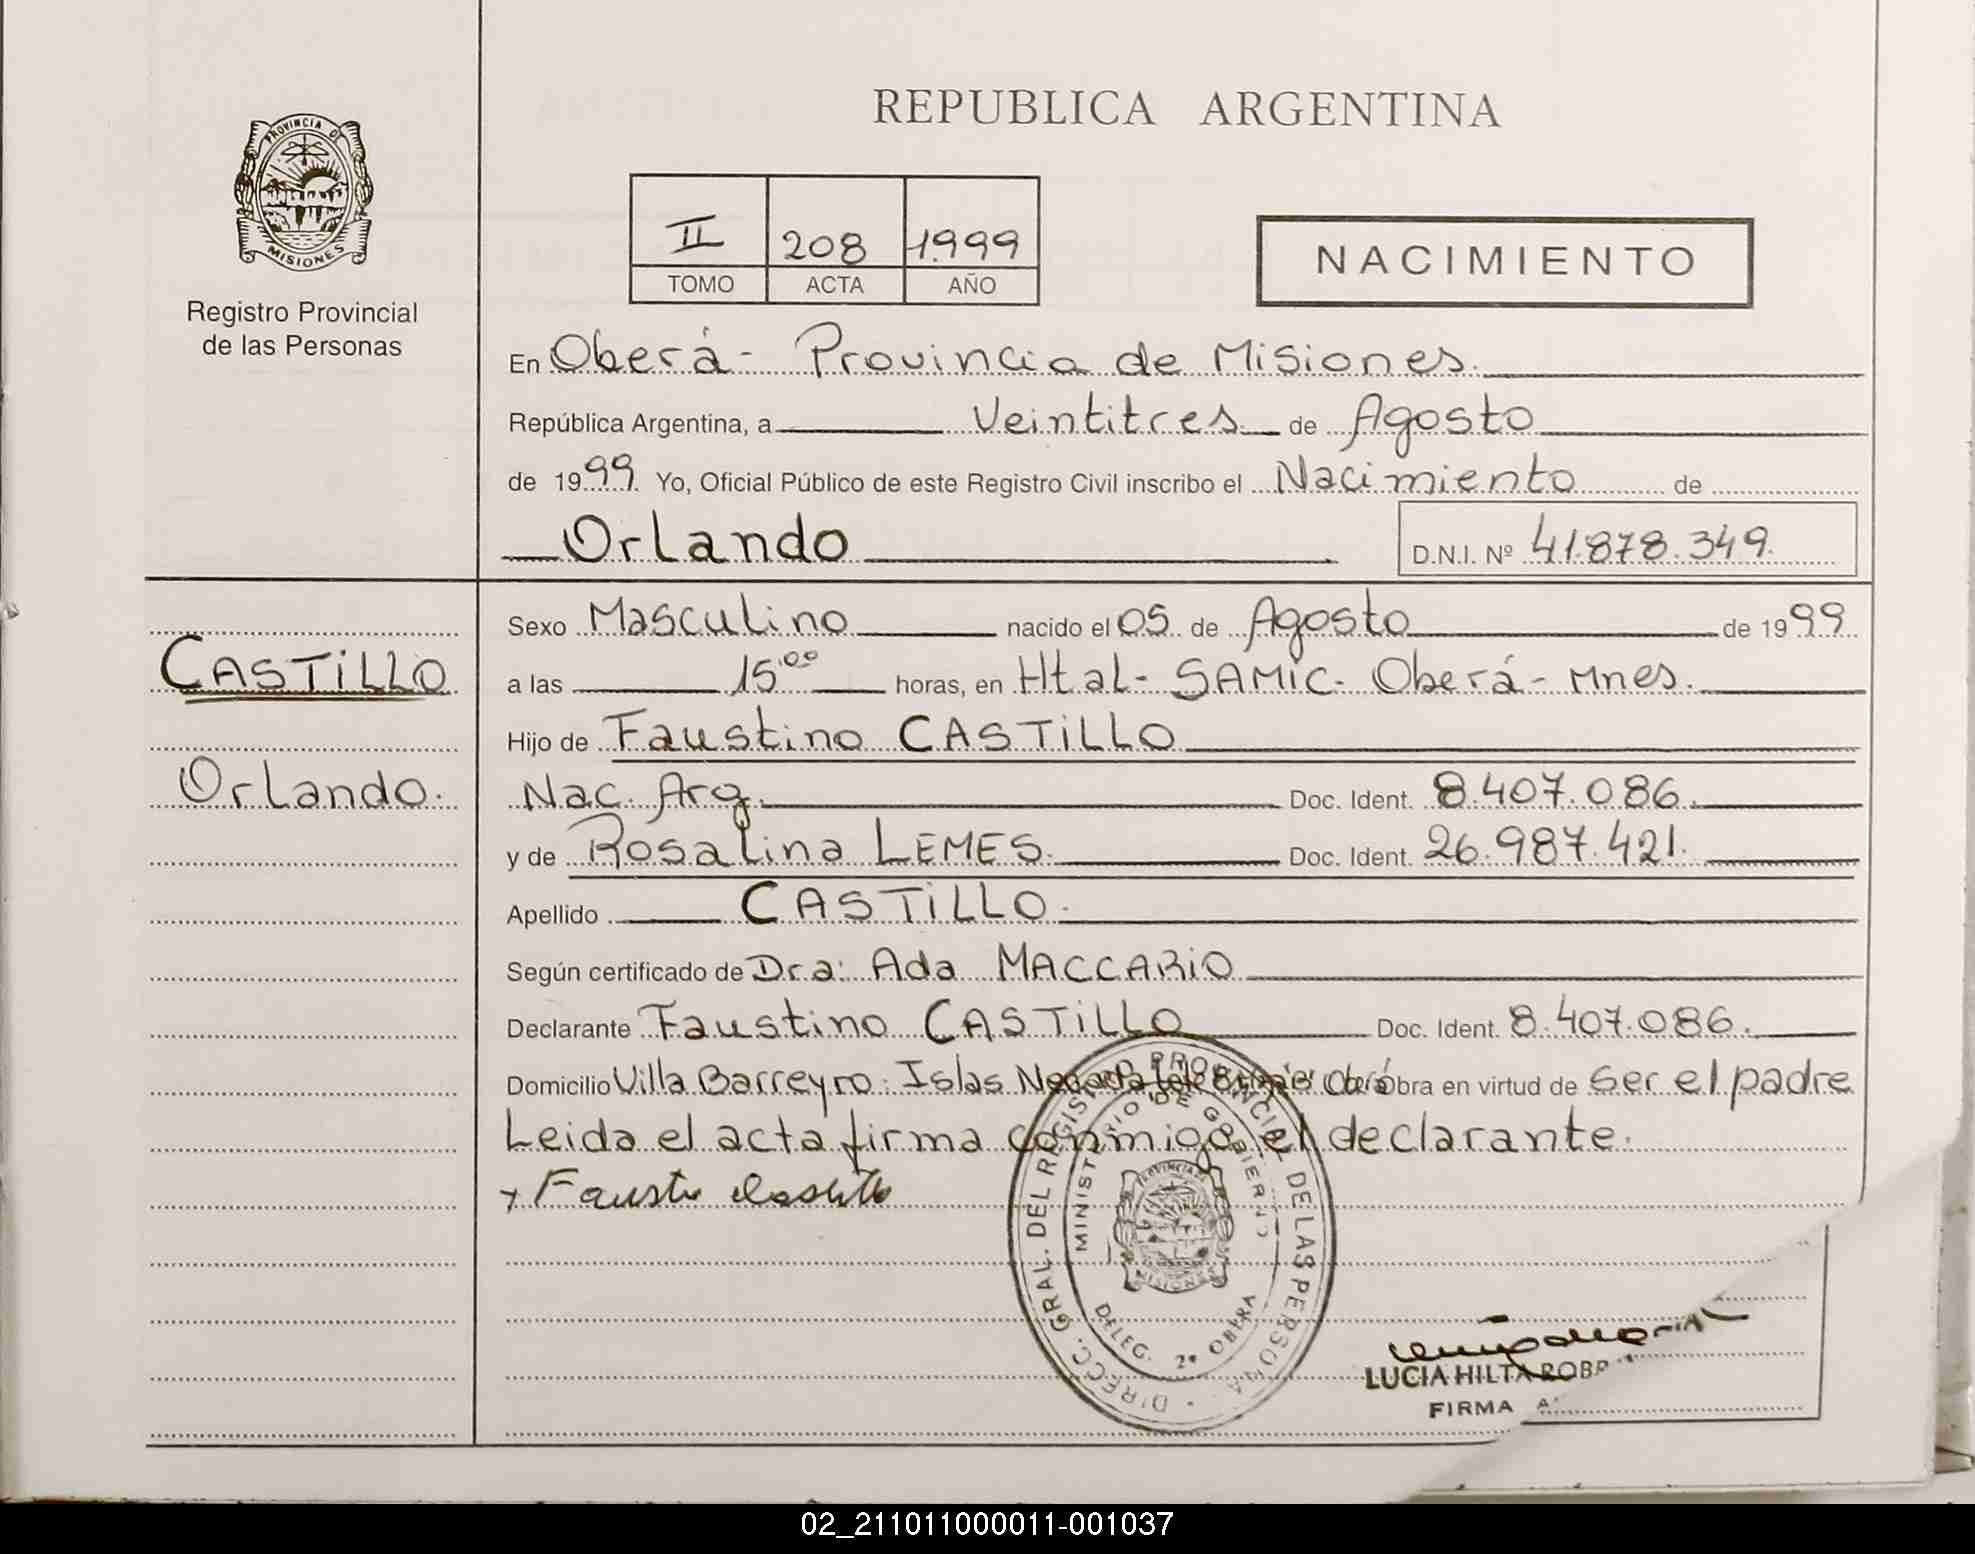 REPUBLICA ARGENTINA
PROVINCIA DE
MISIONES
Registro Provincial
de las Personas
II 208 1999
TOMO ACTA AÑO
NACIMIENTO
En Oberá - Provincia de Misiones.
República Argentina, a Veintitres de Agosto
de 1999. Yo, Oficial Público de este Registro Civil inscribo el Nacimiento de
Orlando
D.N.I. Nº 41.878.349.
CASTiLLO
Orlando.
Sexo Masculino nacido el 05 de Agosto de 1999
a las 15,00 horas, en Htal - SAMiC - Oberá - Mnes.
Hijo de Faustino CASTiLLO
Nac. Arg. Doc. Ident. 8.407.086.
y de Rosalina LEMES. Doc. Ident. 26.987.421.
Apellido CASTiLLO.
Según certificado de Dra: Ada MACCARiO
Declarante Faustino CASTiLLO Doc. Ident. 8.407.086.
Domicilio Villa Barreyro. Islas Oberá obra en virtud de ser el padre
Leida el acta firma conmigo el declarante.
x Fausto Castillo
DIRECC. GRAL. DEL REGISTRO PROVINCIAL DE LAS PERSONAS
MINISTERIO DE GOBIERNO
PROVINCIA
MISIONES
DELEG. 2ª OBERA
LUCIA HILTA
FIRMA A
02_211011000011-001037